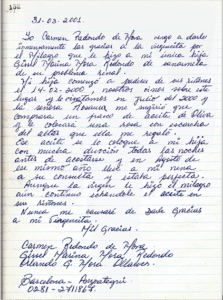 31-03-2001
Yo Carmen Redondo de Mora vengo a darle
inmensamente las gracias a la virgencita por
el Milagro que le hizo a mi única hija
Ginel Marina Mora Redondo de sanarmela
de su problema renal.
Mi hija comenzó a padecer de sus riñones
el 14-02-2000, nosotros vinimos sobre este
lugar y la virgencita en Julio del 2000 y
la señora me sugirió que
comprara un frasco de aceite de Oliva
y le colocara una rosa con escarcha
del altar que ella me regaló.
Ese aceite se lo coloqué a mi hija
con mucha devoción todas las noches
antes de acostarse y en Agosto de
ese mismo año llevé a mi nena
a su consulta y estaba perfecta.
Aunque la virgen le hizo el milagro
aun continuo echandole el aceite en
sus riñones.
Nunca me cansaré de Darle Gracias
a mi Virgencita.
Mil Gracias.
Carmen Redondo de Mora
Ginel Marina Mora Redondo
Orlando G Mora
Barcelona - Anzoátegui
0281-2711867.